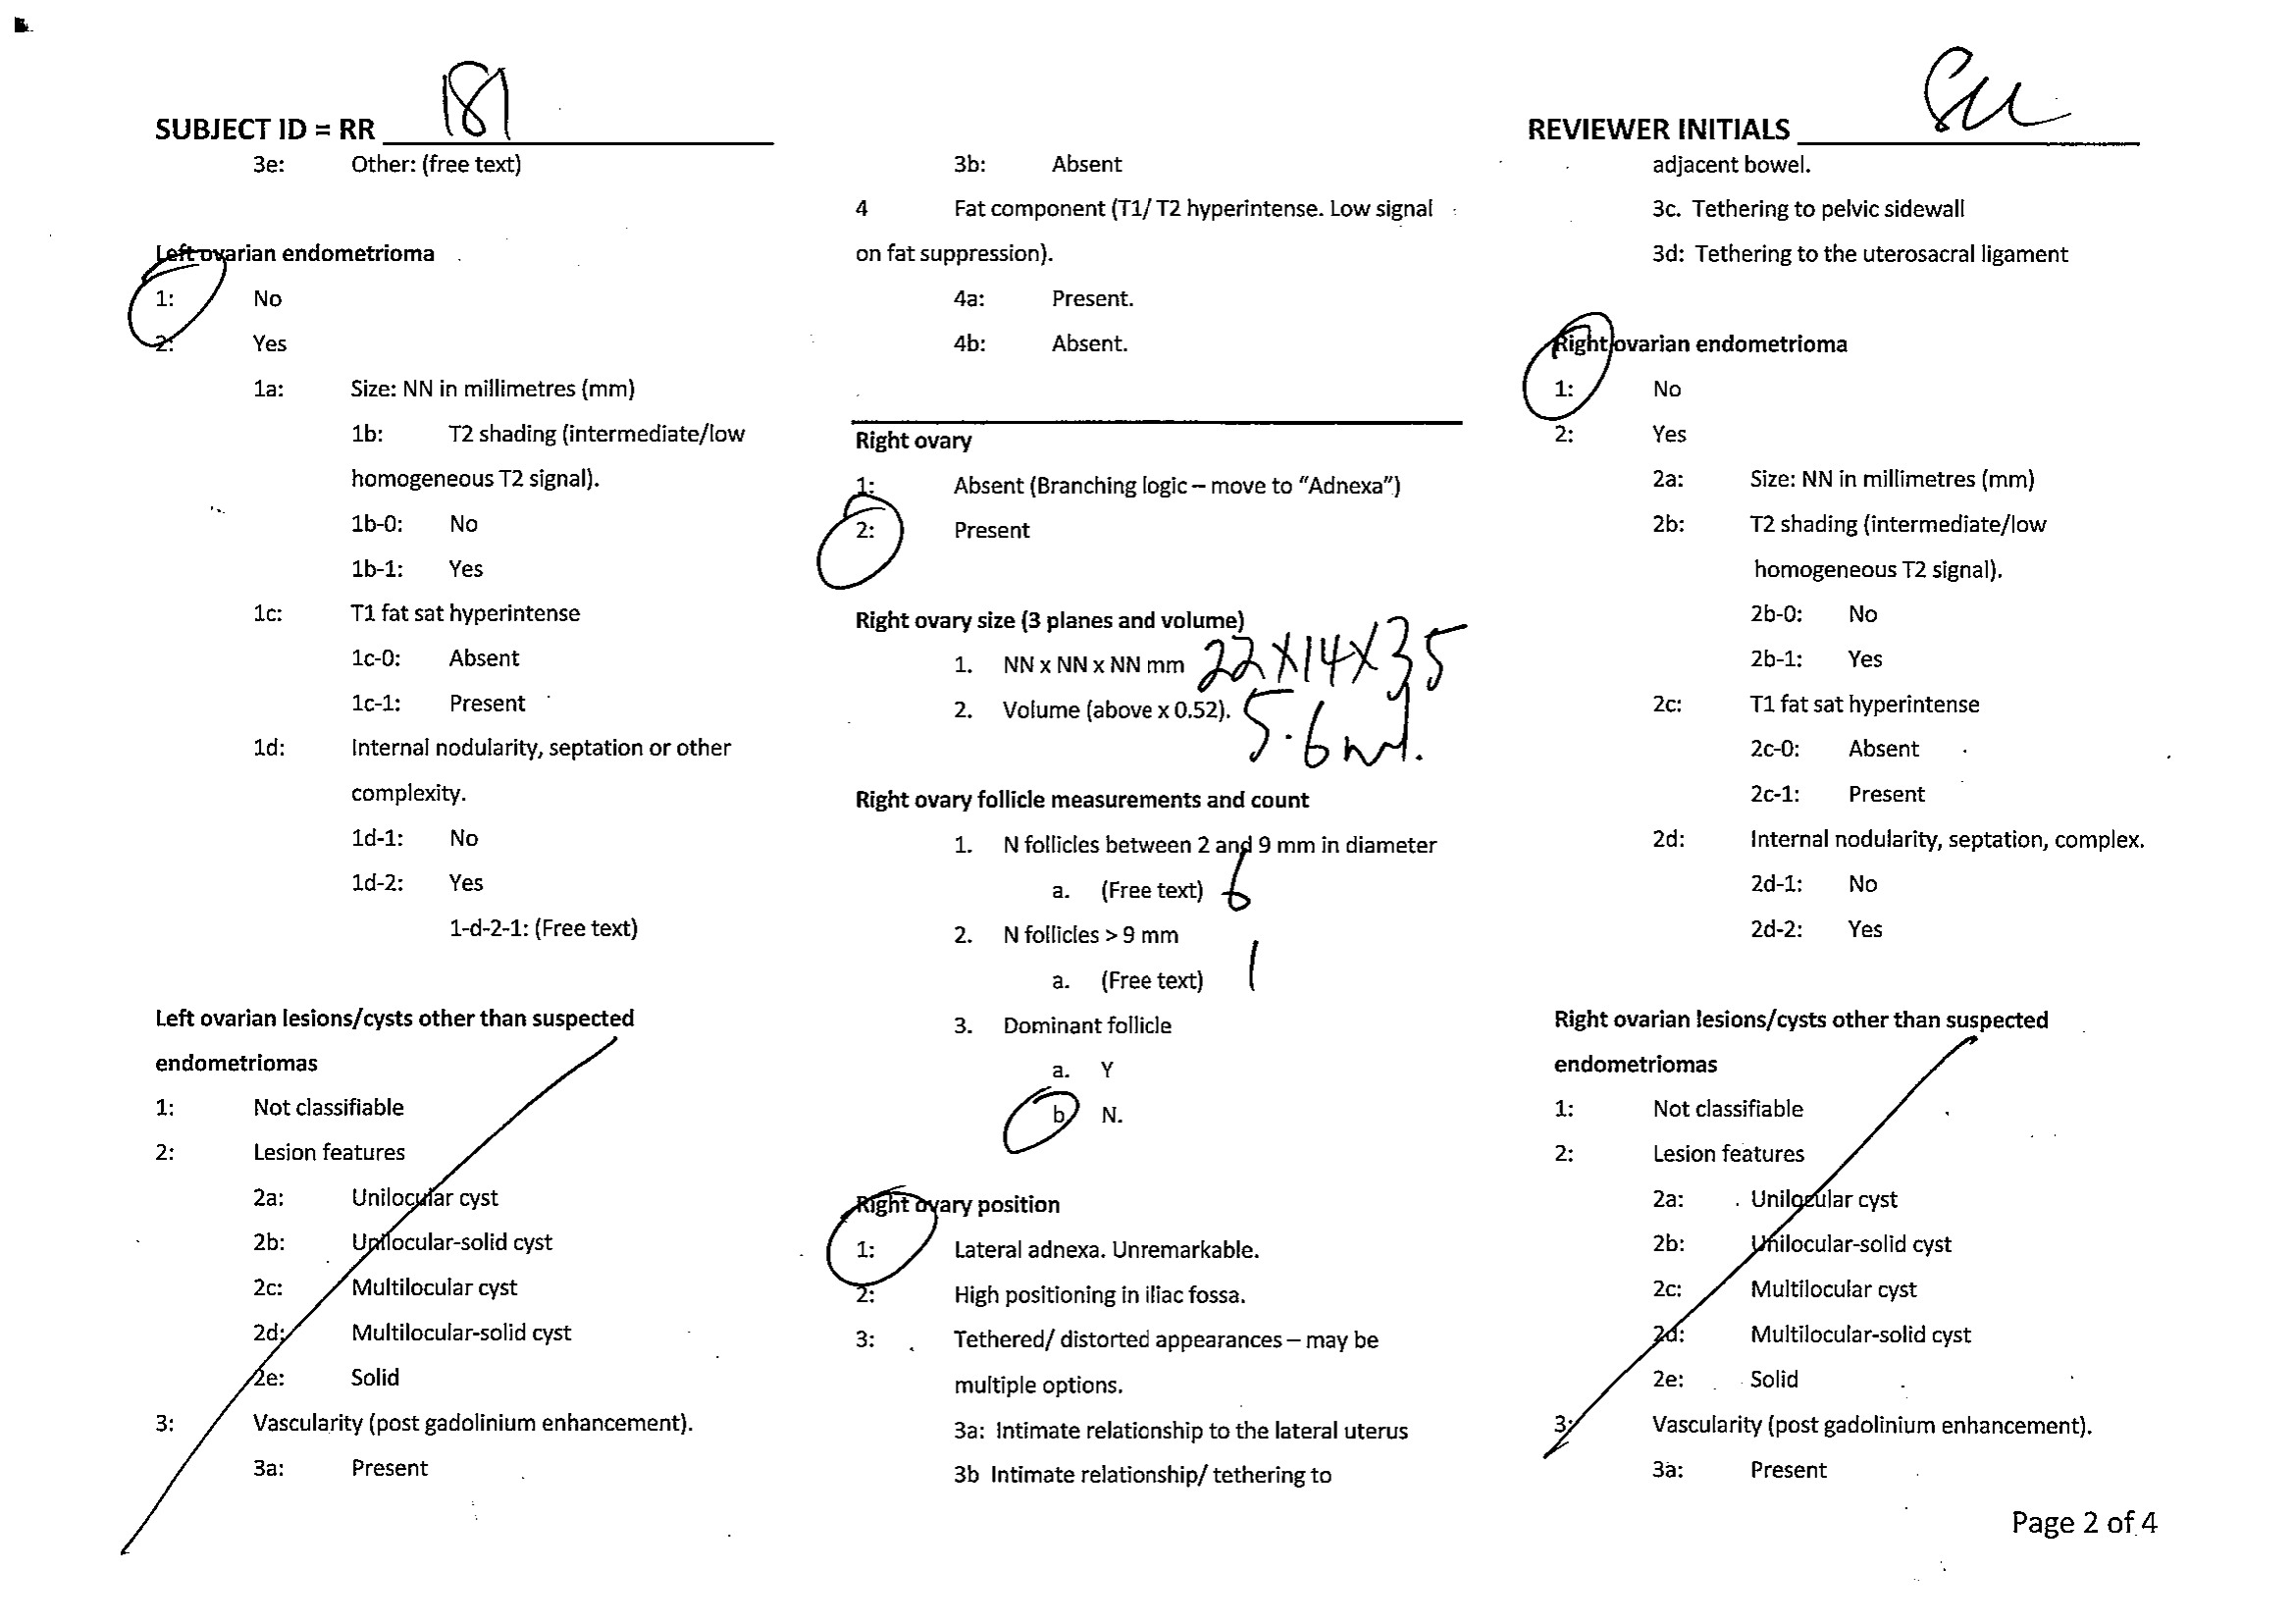 SUBJECT ID = RR 181
3e: Other: (free text)
Left ovarian endometrioma
1: No
2: Yes
1a: Size: NN in millimetres (mm)
1b: T2 shading (intermediate/low
homogeneous T2 signal).
1b-0: No
1b-1: Yes
1c: T1 fat sat hyperintense
1c-0: Absent
1c-1: Present
1d: Internal nodularity, septation or other
complexity.
1d-1: No
1d-2: Yes
1-d-2-1: (Free text)
Left ovarian lesions/cysts other than suspected
endometriomas
1: Not classifiable
2: Lesion features
2a: Unilocular cyst
2b: Unilocular-solid cyst
2c: Multilocular cyst
2d: Multilocular-solid cyst
2e: Solid
3: Vascularity (post gadolinium enhancement).
3a: Present
3b: Absent
4 Fat component (T1/ T2 hyperintense. Low signal
on fat suppression).
4a: Present.
4b: Absent.
Right ovary
1: Absent (Branching logic – move to “Adnexa”)
2: Present
Right ovary size (3 planes and volume)
1. NN x NN x NN mm 22x14x35
2. Volume (above x 0.52). 5.6ml.
Right ovary follicle measurements and count
1. N follicles between 2 and 9 mm in diameter
a. (Free text) 6
2. N follicles > 9 mm
a. (Free text) 1
3. Dominant follicle
a. Y
b. N.
Right ovary position
1: Lateral adnexa. Unremarkable.
2: High positioning in iliac fossa.
3: Tethered/ distorted appearances – may be
multiple options.
3a: Intimate relationship to the lateral uterus
3b Intimate relationship/ tethering to
REVIEWER INITIALS
adjacent bowel.
3c. Tethering to pelvic sidewall
3d: Tethering to the uterosacral ligament
Right ovarian endometrioma
1: No
2: Yes
2a: Size: NN in millimetres (mm)
2b: T2 shading (intermediate/low
homogeneous T2 signal).
2b-0: No
2b-1: Yes
2c: T1 fat sat hyperintense
2c-0: Absent
2c-1: Present
2d: Internal nodularity, septation, complex.
2d-1: No
2d-2: Yes
Right ovarian lesions/cysts other than suspected
endometriomas
1: Not classifiable
2: Lesion features
2a: Unilocular cyst
2b: Unilocular-solid cyst
2c: Multilocular cyst
2d: Multilocular-solid cyst
2e: Solid
3: Vascularity (post gadolinium enhancement).
3a: Present
Page 2 of 4